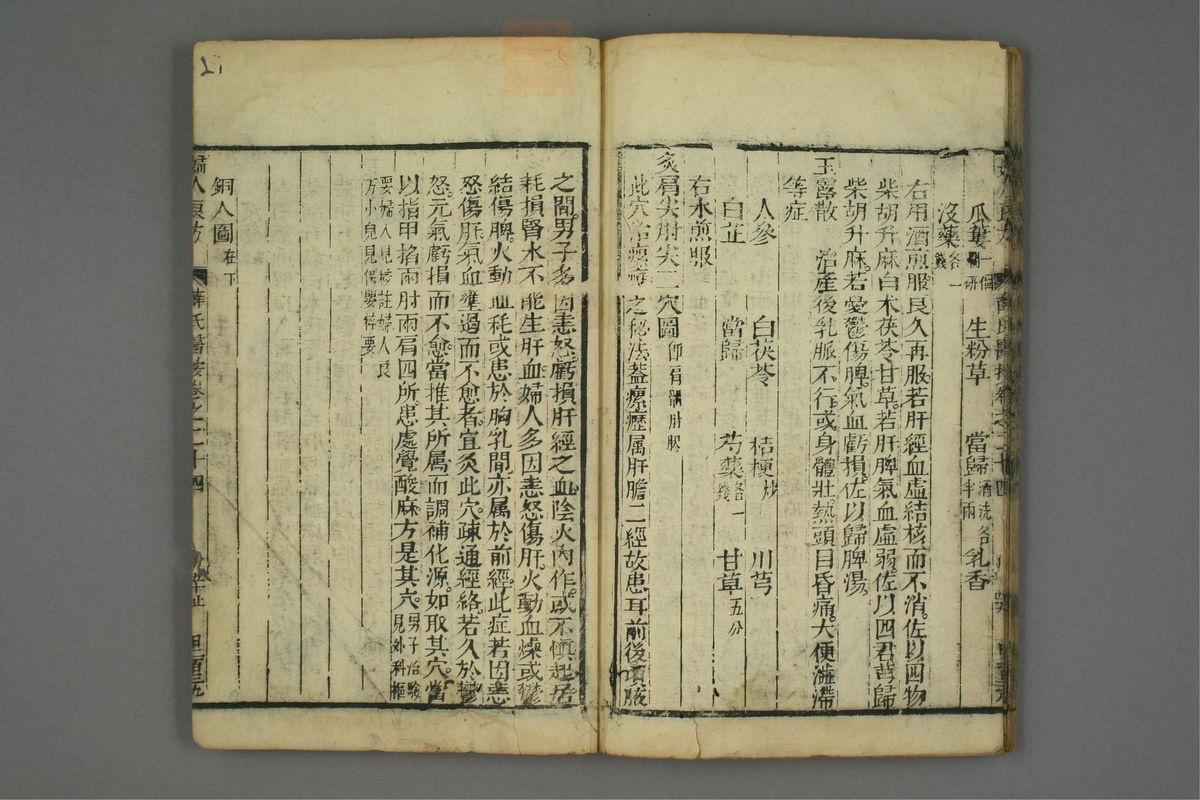 瓜蔞一個研 生粉草 當歸酒洗各半兩 乳香
沒藥各一錢
右用酒煎服良久再服若肝經血虛結核而不消佐以四物
柴胡升麻白朮茯苓甘草若肝脾氣血虛弱佐以四君芎歸
柴胡升麻若憂鬱傷脾氣血虧損佐以歸脾湯
玉露散 治產後乳脈不行或身體壯熱頭目昏痛大便澁滯
等症
人參 白茯苓 桔梗炒 川芎
白芷 當歸 芍藥各一錢 甘草五分
右水煎服
灸肩尖肘尖二穴圖即肩髃肘髎
此穴治瘰癧之秘法蓋瘰癧属肝膽二經故患耳前後項腋
之間男子多因恚怒虧損肝經之血陰火內作或不慎起居
耗損腎水不能生肝血婦人多因恚怒傷肝火動血燥或鬱
結傷脾火動血耗或患於胸乳間亦属於前經此症若因恚
怒傷肝氣血壅遏而不愈者宜灸此穴疎通經絡若久於鬱
怒元氣虧損而不愈當推其所属而調補化源如取其穴當
以指甲掐兩肘兩肩四所患處覺酸麻方是其穴男子治驗見外科樞
要婦人見校註婦人良方小兒見保嬰粹要
銅人圖在下
婦人良方 薛氏醫按卷之二十四